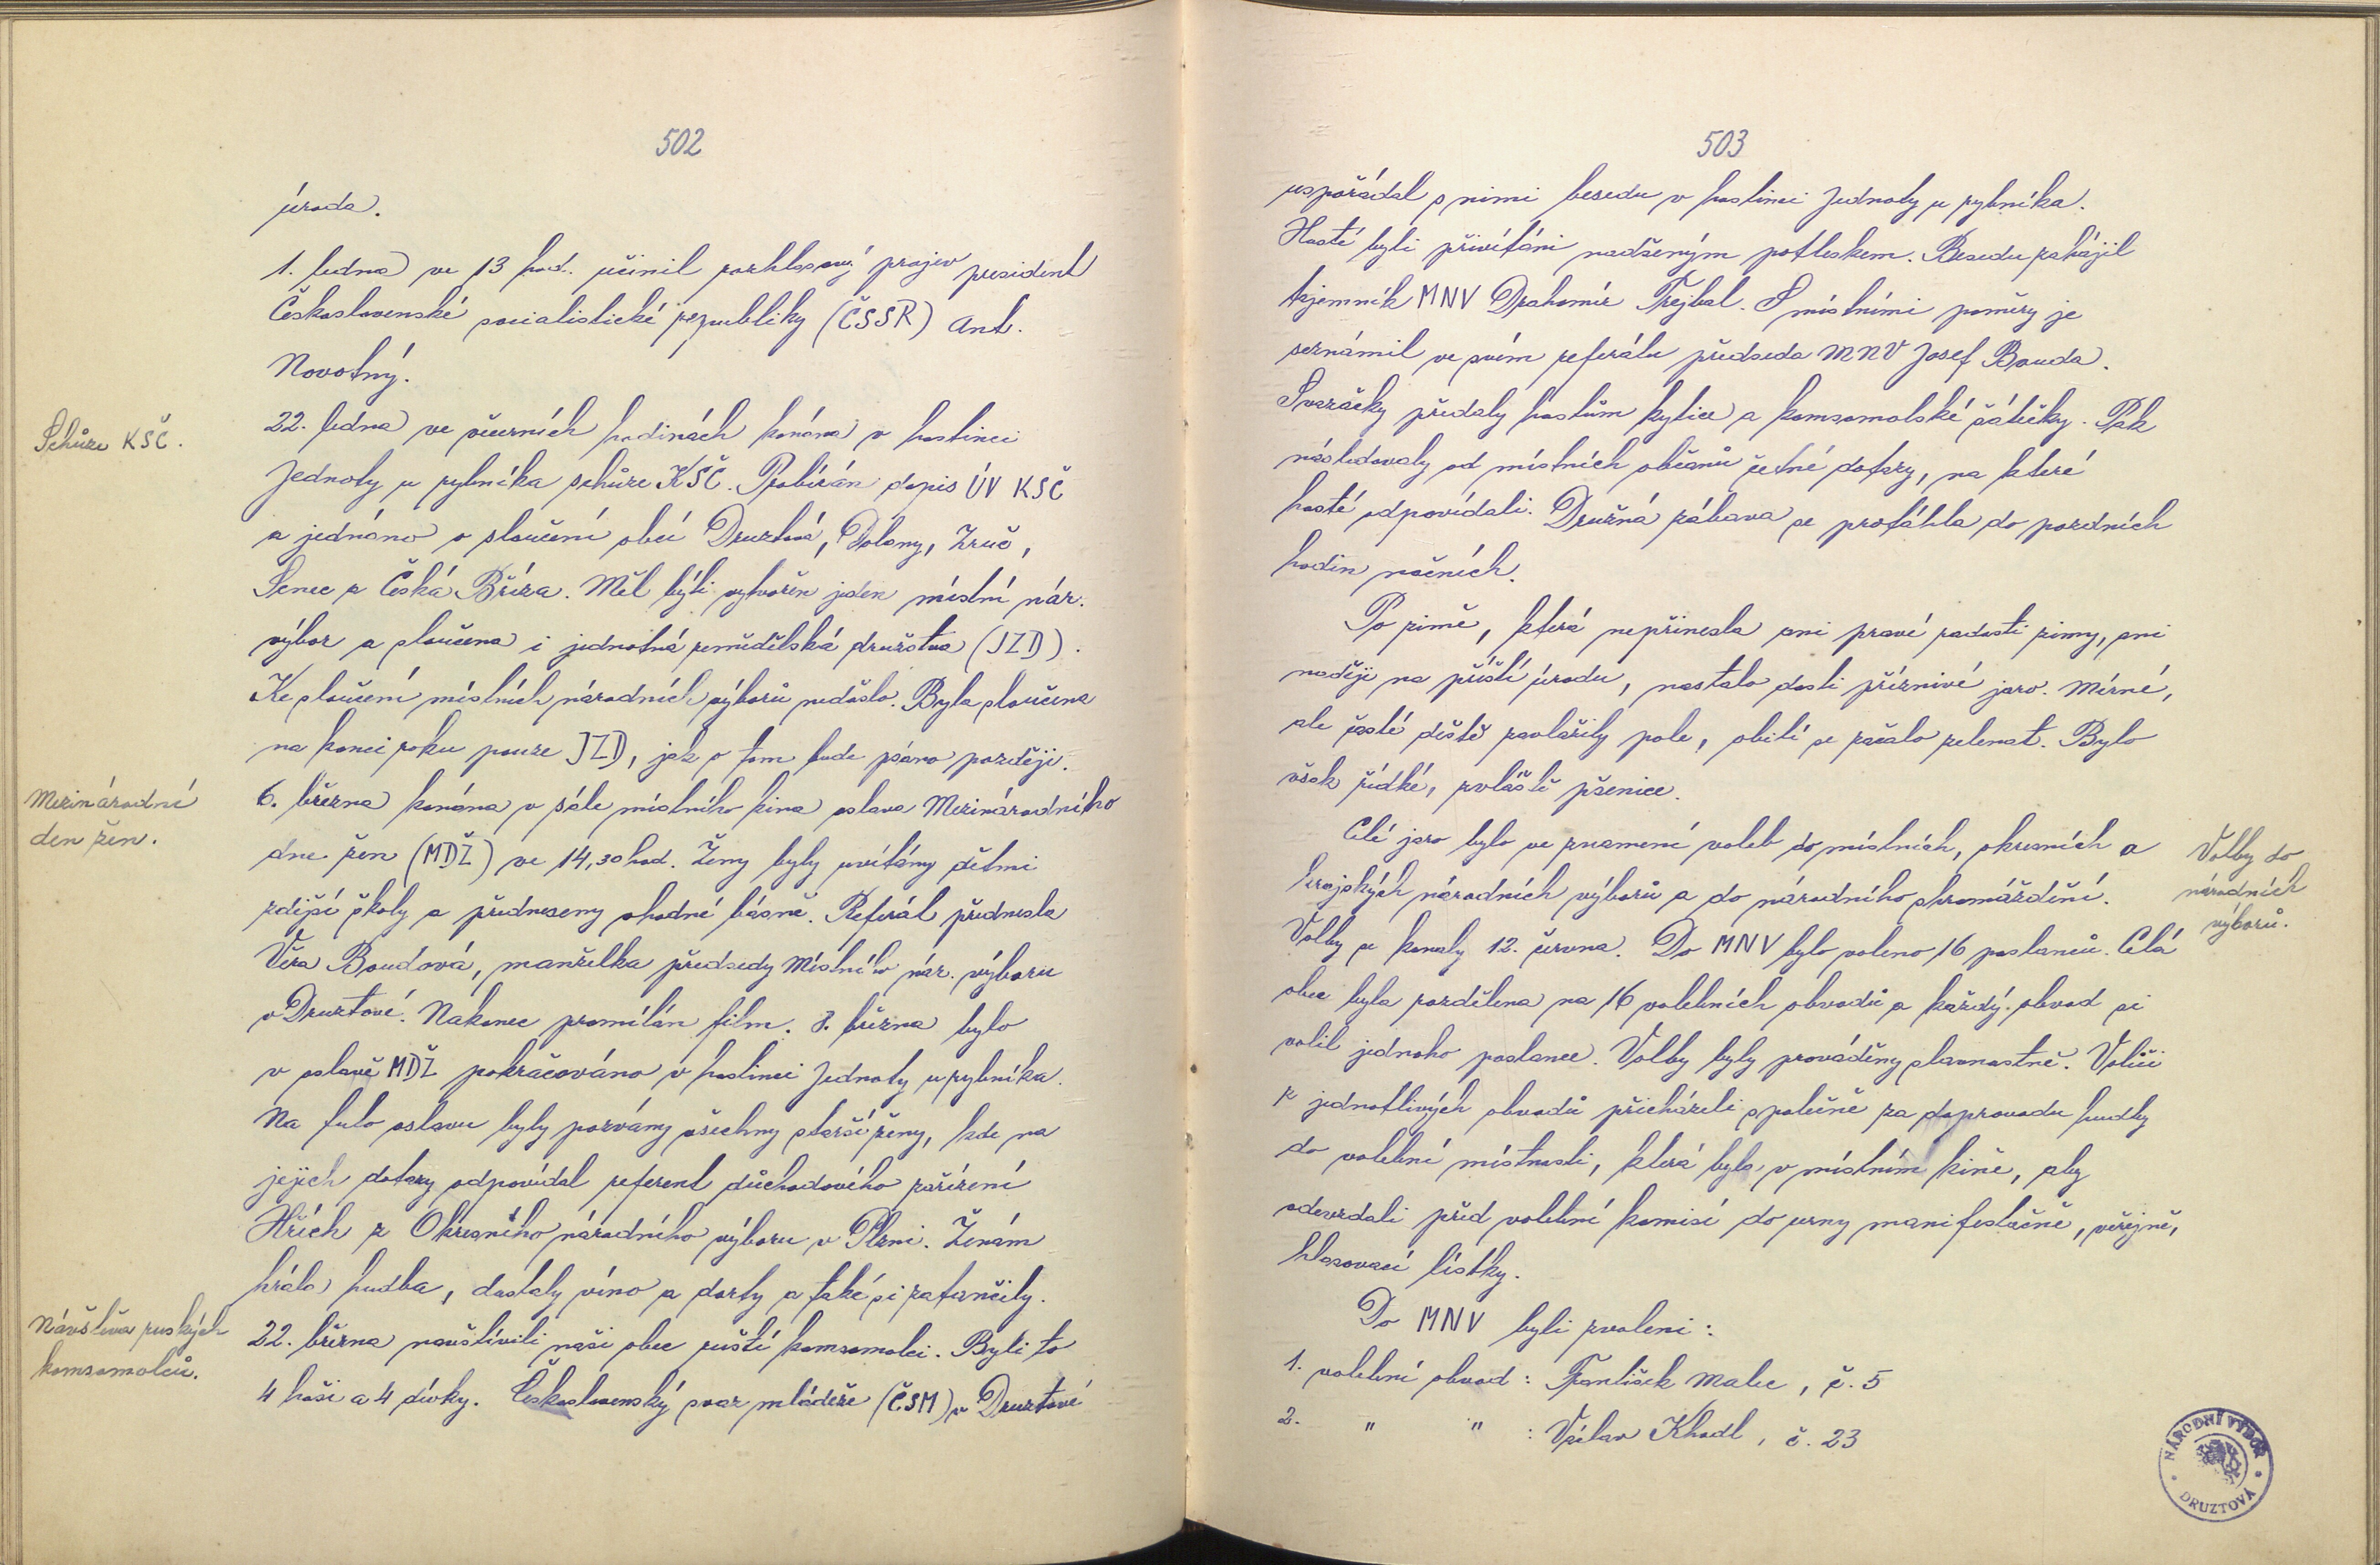 502
úroda.
1. ledna ve 13 hod. učinil rozhlasový projev president
Československé socialistické republiky (ČSSR) Ant.
Novotný.
Schůze KSČ.
22. ledna ve večerních hodinách konána v hostinci
Jednoty u rybníka schůze KSČ. Probírán dopis ÚV KSČ
a jednáno o sloučení obcí Druztová, Dolany, Zruč,
Senec a Česká Bříza. Měl býti vytvořen jeden místní nár.
výbor a sloučena i jednotná zemědělská družstva (JZD).
Ke sloučení místních národních výborů nedošlo. Byla sloučena
na konci roku pouze JZD, jak o tom bude psáno později.
Mezinárodní
den žen.
6. března konána v sále místního kina oslava Mezinárodního
dne žen (MDŽ) ve 14,30 hod. Ženy byly uvítány dětmi
zdejší školy a předneseny vhodné básně. Referát přednesla
Věra Boudová, manželka předsedy Místního nár. výboru
v Druztové. Nakonec promítán film. 8. března bylo
v oslavě MDŽ pokračováno v hostinci Jednoty u rybníka.
Na tuto oslavu byly pozvány všechny starší ženy, kde na
jejich dotazy odpovídal referent důchodového zařízení
Hřích z Okresního národního výboru v Plzni. Ženám
hrála hudba, dostaly víno a dorty a také si zatančily.
Návštěva ruských
komsomolců.
22. března navštívili naši obec ruští komsomolci. Byli to
4 hoši a 4 dívky. Československý svaz mládeže (ČSM) v Druztové
503
uspořádal s nimi besedu v hostinci Jednoty u rybníka.
Hosté byli přivítáni nadšeným potleskem. Besedu zahájil
tajemník MNV Drahomír Trejbal. S místními poměry je
seznámil ve svém referátu předseda MNV Josef Bouda.
Svazačky předaly hostům kytice a komsomolské šátečky. Pak
následovaly od místních občanů četné dotazy, na které
hosté odpovídali. Družná zábava se protáhla do pozdních
hodin nočních.
Po zimě, která nepřinesla ani pravé radosti zimy, ani
naději na příští úrodu, nastalo dosti příznivé jaro. Mírné,
ale časté deště zavlažily pole, obilí se začalo zelenat. Bylo
však řídké, zvláště pšenice.
Celé jaro bylo ve znamení voleb do místních, okresních a
krajských národních výborů a do národního shromáždění.
Volby do
národních
výborů.
Volby se konaly 12. června. Do MNV bylo voleno 16 poslanců. Celá
obec byla rozdělena na 16 volebních obvodů a každý obvod si
volil jednoho poslance. Volby byly prováděny slavnostně. Voliči
z jednotlivých obvodů přicházeli společně za doprovodu hudby
do volební místnosti, která byla v místním kině, aby
odevzdali před volební komisí do urny manifestačně, veřejně,
hlasovací lístky.
Do MNV byli zvoleni:
1. volební obvod: František Malec, č. 5
2. " " : Václav Khodl, č. 23
NÁRODNÍ VÝBOR
DRUZTOVÁ